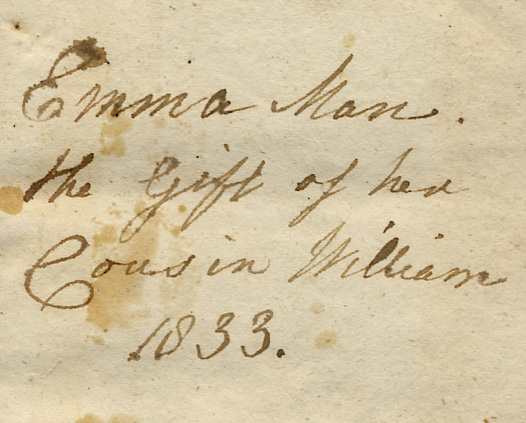 Emma Man.
the Gift of her
Cousin William
1833.